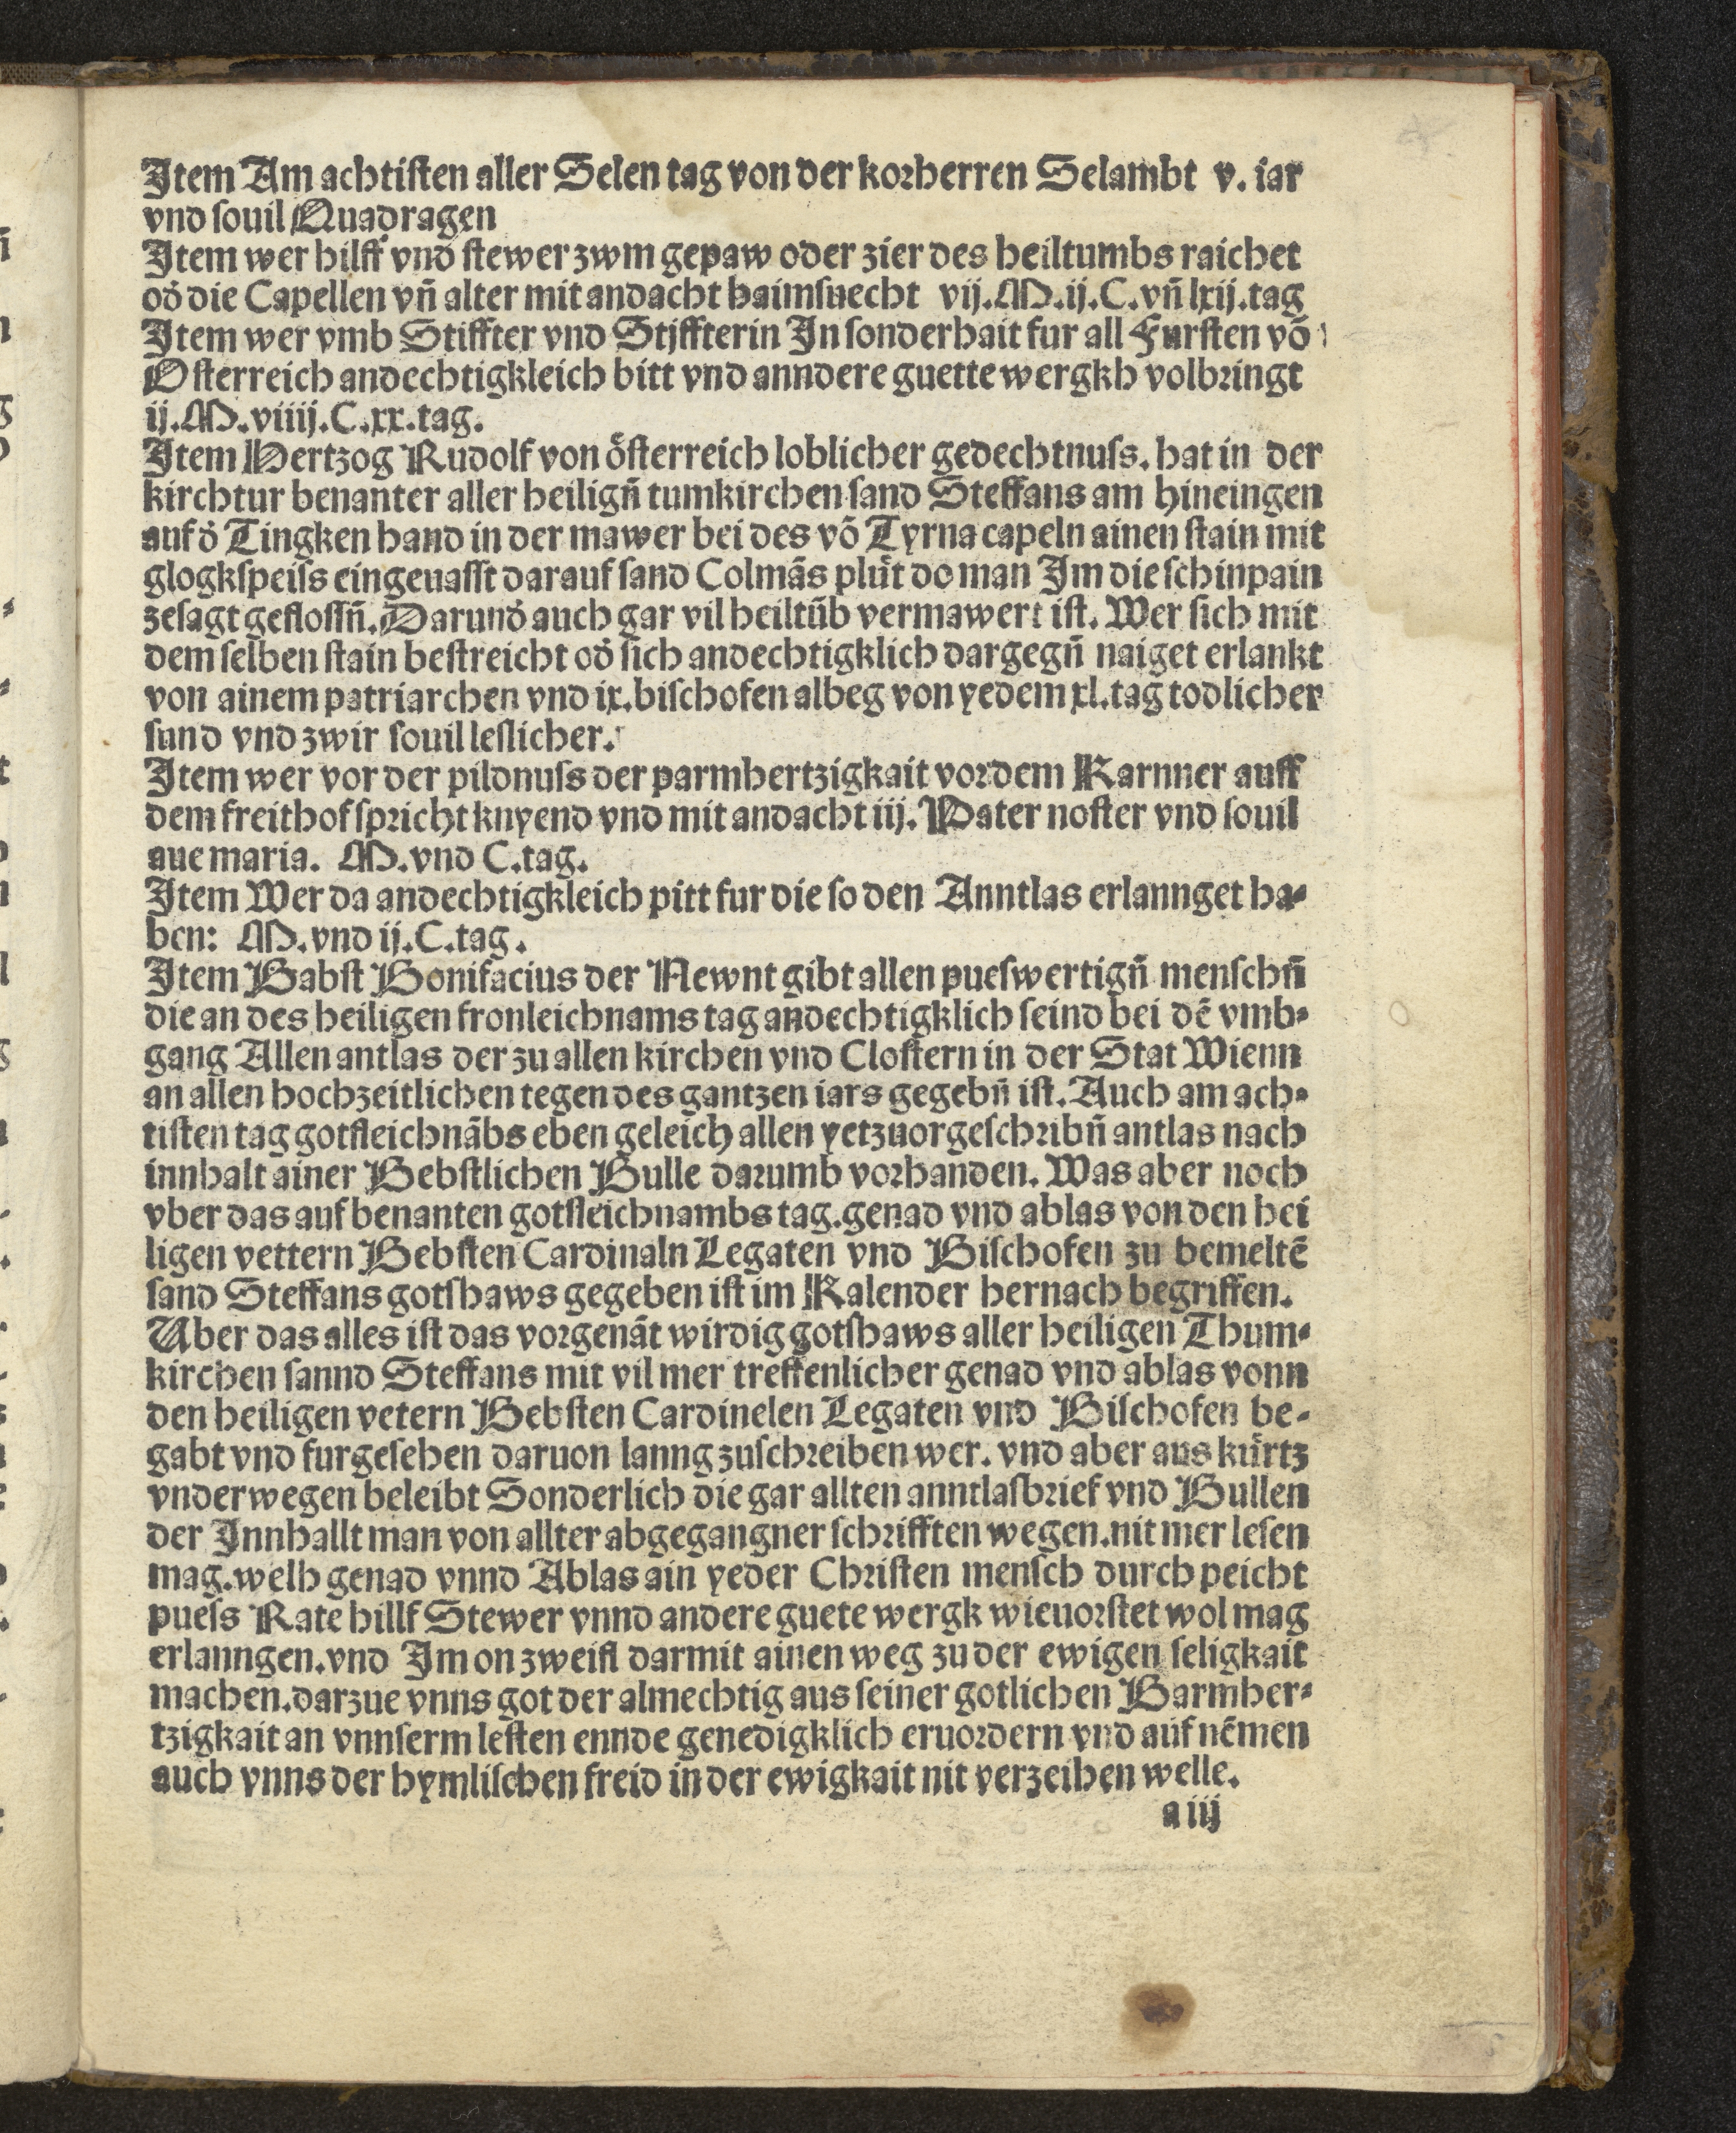 Item Am achtiſten aller Selen tag von der korherren Selambt v. iar
vnd ſouil Quadragen
Item wer hilff vnd ſtewer zwm gepaw oder zier des heiltumbs raichet
od̕ die Capellen vn̄ alter mit andacht haimſuecht vij.M.ij.C.vn̄ lxij.tag
Item wer vmb Stiffter vnd Stiffterin In ſonderhait fur all Furſten vō
Oſterreich andechtigkleich bitt vnd anndere guette wergkh volbringt
ij.M.viiij.C.xx.tag.
Item Hertzog Rudolf von oͤſterreich loblicher gedechtnuſs. hat in der
kirchtur benanter aller heilign̄ tumkirchen ſand Steffans am hineingen
auf d̕ Tingken hand in der mawer bei des vō Tyrna capeln ainen ſtain mit
glogkſpeiſs eingeuaſſt darauf ſand Colmās pluͤt do man Im die ſchinpain
zeſagt gefloſſn̄. Darund̕ auch gar vil heiltūb vermawert iſt. Wer ſich mit
dem ſelben ſtain beſtreicht od̕ ſich andechtigklich dargegn̄ naiget erlankt
von ainem patriarchen vnd ix.biſchofen albeg von yedem xl.tag todlicher
ſund vnd zwir ſouil leſlicher.
Item wer vor der pildnuſs der parmhertzigkait vor dem Karnner auff
dem freithof ſpricht knyend vnd mit andacht iij. Pater noſter vnd ſouil
aue maria. M.vnd C.tag.
Item Wer da andechtigkleich pitt fur die ſo den Anntlas erlannget ha⸗
ben: M.vnd ij.C.tag.
Item Babſt Bonifacius der Newnt gibt allen pueſwertign̄ menſchn̄
die an des heiligen fronleichnams tag andechtigklich ſeind bei dē vmb⸗
gang Allen antlas der zu allen kirchen vnd Cloſtern in der Stat Wienn
an allen hochzeitlichen tegen des gantzen iars gegebn̄ iſt. Auch am ach⸗
tiſten tag gotſleichnābs eben geleich allen yetzuorgeſchribn̄ antlas nach
innhalt ainer Bebſtlichen Bulle darumb vorhanden. Was aber noch
vber das auf benanten gotſleichnambs tag.genad vnd ablas von den hei
ligen vettern Bebſten Cardinaln Legaten vnd Biſchofen zu bemeltē
ſand Steffans gotſhaws gegeben iſt im Kalender hernach begriffen.
Uber das alles iſt das vorgenāt wirdig gotſhaws aller heiligen Thum⸗
kirchen ſannd Steffans mit vil mer treffenlicher genad vnd ablas vonn
den heiligen vetern Bebſten Cardinelen Legaten vnd Biſchofen be⸗
gabt vnd furgeſehen daruon lanng zuſchreiben wer. vnd aber aus kuͤrtz
vnderwegen beleibt Sonderlich die gar allten anntlaſbrief vnd Bullen
der Innhallt man von allter abgegangner ſchrifften wegen.nit mer leſen
mag.welh genad vnnd Ablas ain yeder Chriſten menſch durch peicht
pueſs Rate hillf Stewer vnnd andere guete wergk wieuorſtet wol mag
erlanngen.vnd Im on zweifl darmit ainen weg zu der ewigen ſeligkait
machen.darzue vnns got der almechtig aus ſeiner gotlichen Barmher⸗
tzigkait an vnnſerm leſten ennde genedigklich eruordern vnd auf nēmen
auch vnns der hymliſchen freid in der ewigkait nit verzeihen welle.
a iij